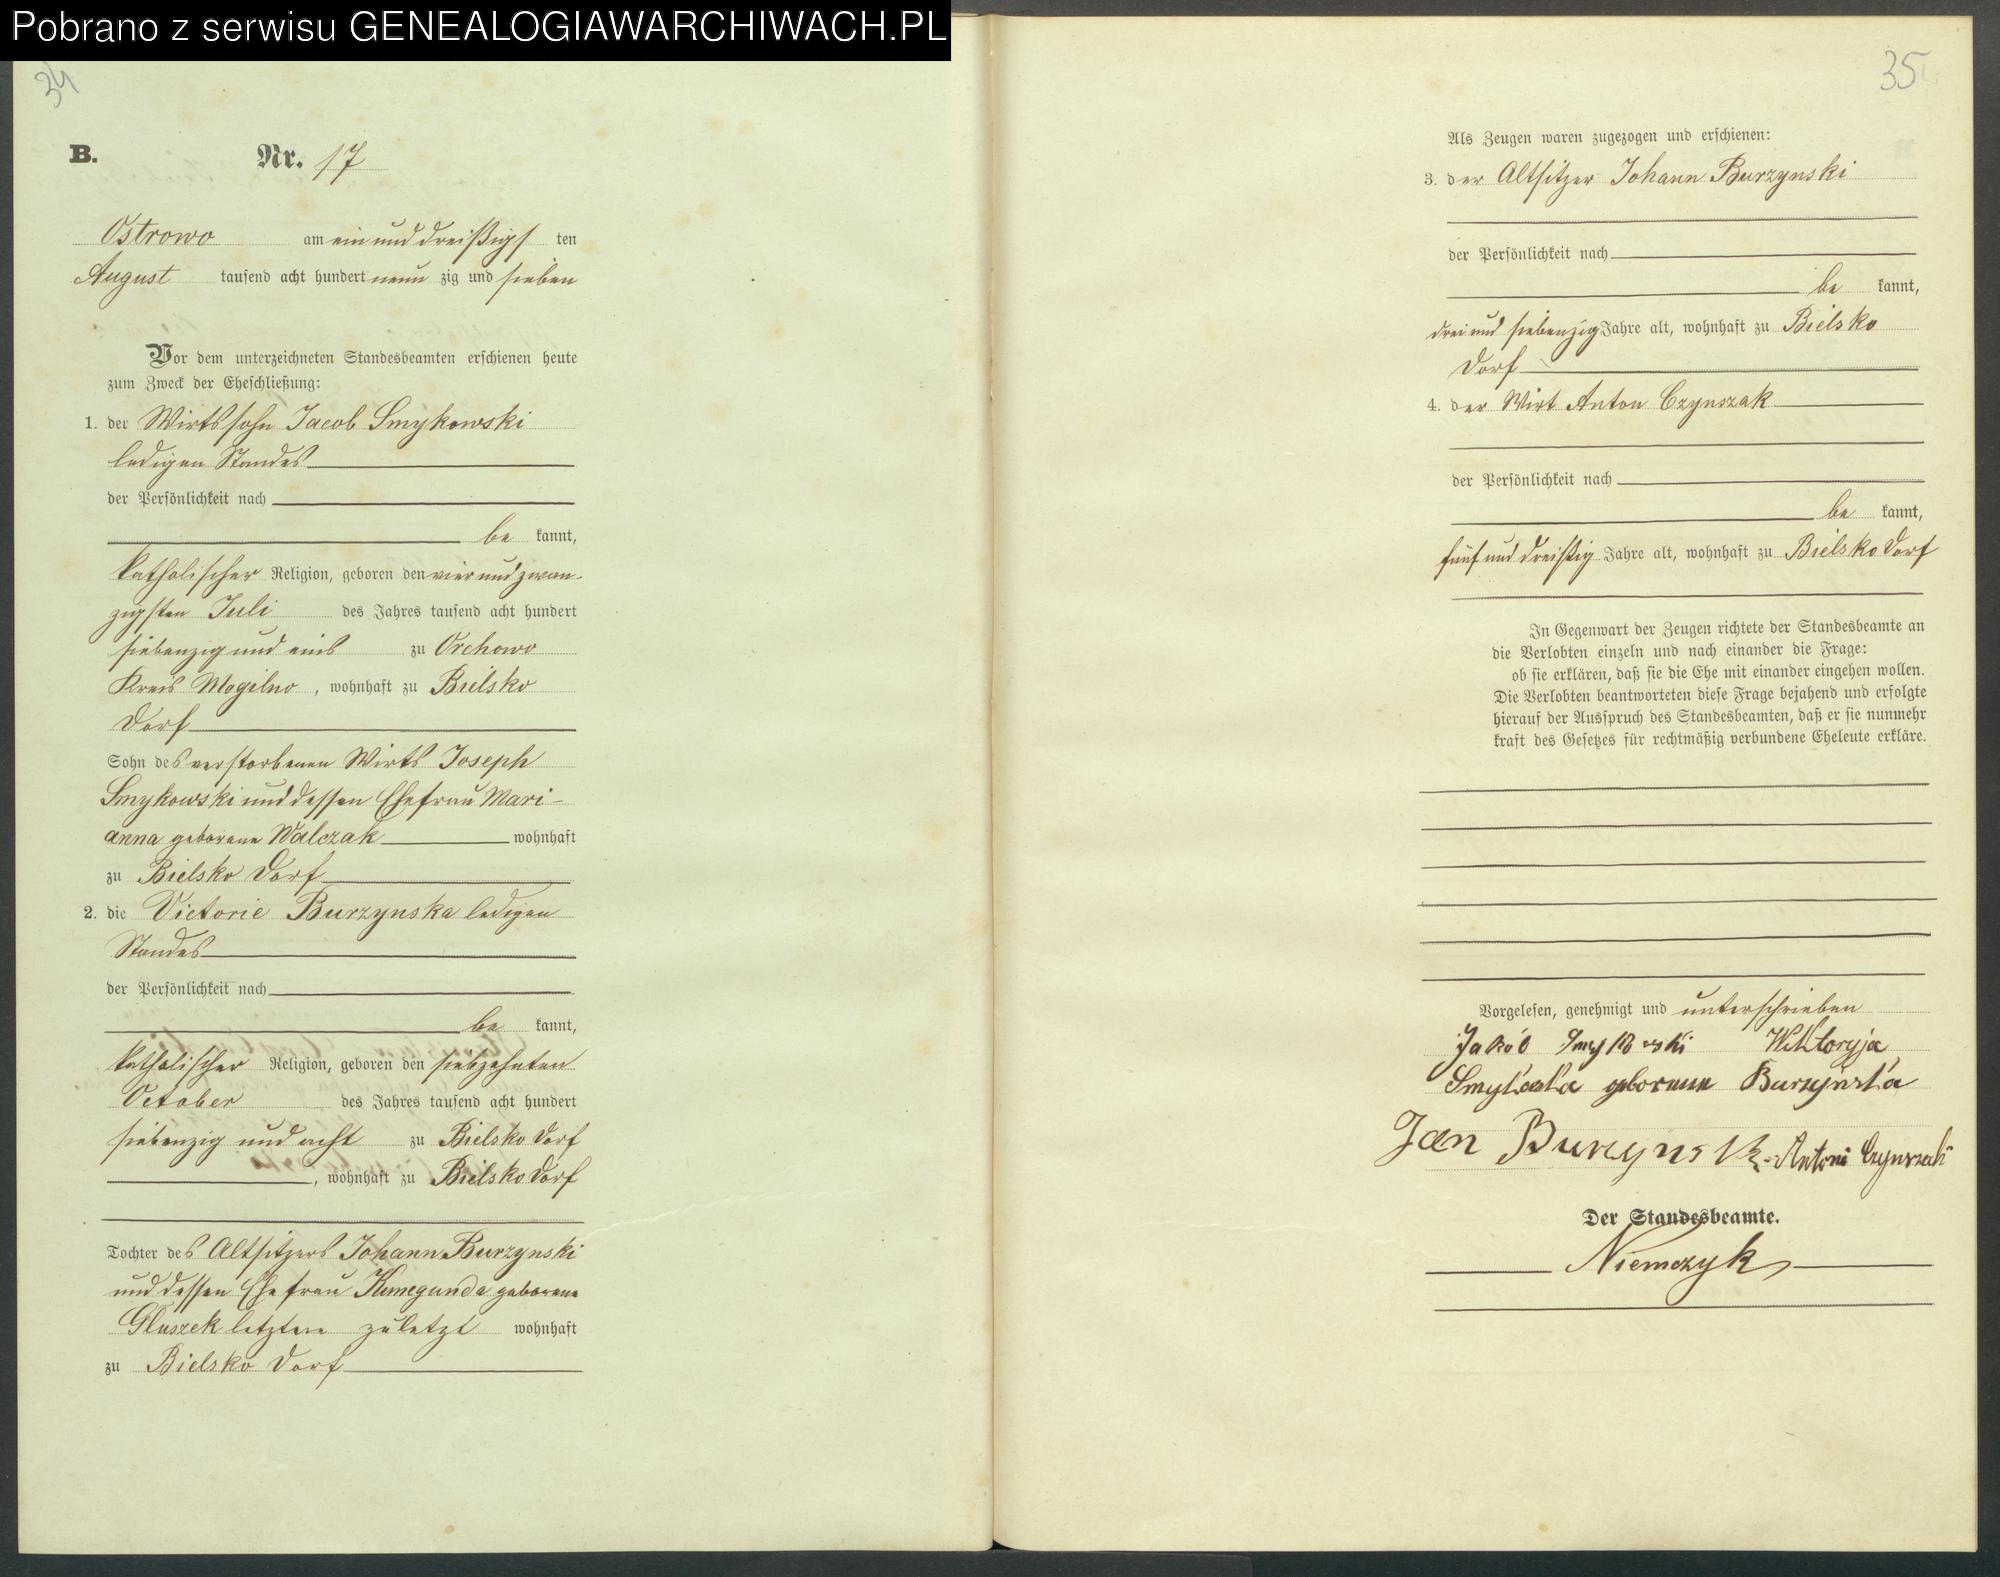 Pobrano z serwisu GENEALOGIAWARCHIWACH.PL
34
B. Nr. 17
Ostrowo am ein und dreißigs ten
August tausend acht hundert neun zig und sieben
Vor dem unterzeichneten Standesbeamten erschienen heute
zum Zweck der Eheschließung:
1. der Wirtssohn Jacob Smykowski
ledigen Standes
der Persönlichkeit nach
be kannt,
katholischer Religion, geboren den vier und zwan-
zigsten Juli des Jahres tausend acht hundert
siebenzig und eins zu Orchowo
Kreis Mogilno, wohnhaft zu Bielsko
Dorf
Sohn des verstorbenen Wirts Joseph
Smykowski und dessen Ehefrau Mari-
anna geborene Walczak wohnhaft
zu Bielsko Dorf
2. die Victorie Burzynska ledigen
Standes
der Persönlichkeit nach
be kannt,
katholischer Religion, geboren den siebzehnten
October des Jahres tausend acht hundert
siebenzig und acht zu Bielsko Dorf
, wohnhaft zu Bielsko Dorf
Tochter des Altsitzers Johann Burzynski
und dessen Ehefrau Kunegunda geborene
Gluszek letztere zuletzt wohnhaft
zu Bielsko Dorf
35
Als Zeugen waren zugezogen und erschienen:
3. der Altsitzer Johann Burzynski
der Persönlichkeit nach
be kannt,
drei und siebenzig Jahre alt, wohnhaft zu Bielsko
Dorf
4. der Wirt Anton Czynszak
der Persönlichkeit nach
be kannt,
fünf und dreißig Jahre alt, wohnhaft zu Bielsko Dorf
In Gegenwart der Zeugen richtete der Standesbeamte an
die Verlobten einzeln und nach einander die Frage:
ob sie erklären, daß sie die Ehe mit einander eingehen wollen.
Die Verlobten beantworteten diese Frage bejahend und erfolgte
hierauf der Ausspruch des Standesbeamten, daß er sie nunmehr
kraft des Gesetzes für rechtmäßig verbundene Eheleute erkläre.
Vorgelesen, genehmigt und unterschrieben
Jakób Smykowski Wiktoryja
geborene Burzyńska
Jan Burzynski Antoni Czynszak
Der Standesbeamte.
Niemczyk